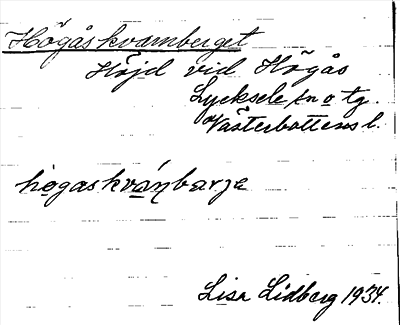 Högåskvarnberget
Höjd vid Högås
Lycksele sn o tg.
Västerbottens l.
högaskvάɳbarjə
Lisa Lidberg 1934.